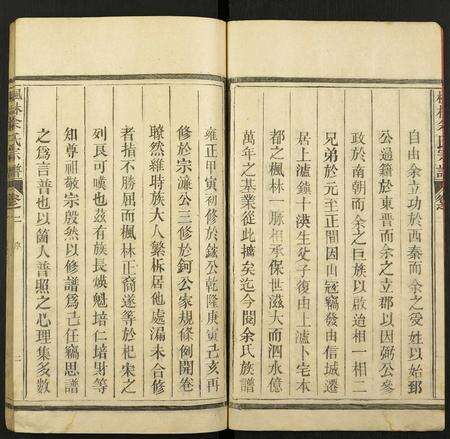 自由余立功於西秦而余之受姓以始郅
公過籍於東晋而余之立郡以因弼公參
政於南朝而余之巨族以啟迨相一相二
兄弟於元至正間因山寇竊發由信城遷
居上瀘鎮十渶生从子復由上瀘卜宅本
都之楓林一脈相承保世滋大而泗水億
萬年之基業從此擴矣迄今閱余氏族譜
雍正甲寅初修於鎡公乾隆庚寅己亥再
修於宗濂公三修於鈳公家規條例開卷
瞭然維時族大人繁柝居他處漏未合修
者指不勝屈而楓林正裔遂等於杞宋之
列良可嘆也兹有族長煐魁培仁培財等
知尊祖敬宗殷然以修譜爲己任竊思譜
之爲言普也以箇人普照之心理集多數
楓林余氏宗譜 卷之一 序 二